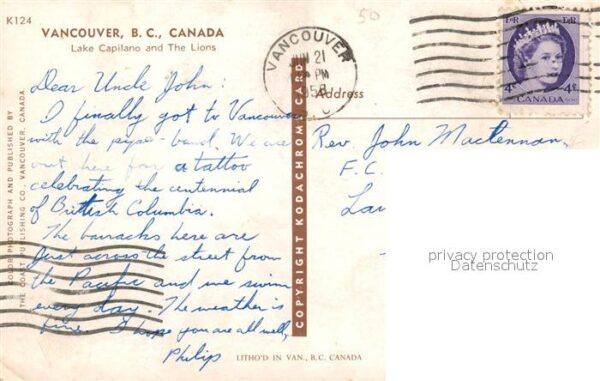 K124
VANCOUVER, B. C., CANADA
Lake Capilano and The Lions
50
VANCOUVER
JUN 21
PM
1958
Address
E II R
E II R
4¢
4¢
CANADA
Dear Uncle John:
I finally got to Vancouver
with the pipe-band. We are
out here for a tattoo
celebrating the centennial
of British Columbia.
The barracks here are
just across the street from
the Pacific and we swim
every day. The weather is
fine. I hope you are all well,
Philip
COLOR PHOTOGRAPH AND PUBLISHED BY
THE COAST PUBLISHING CO., VANCOUVER, CANADA
COPYRIGHT KODACHROME CARD
Rev. John MacLennan,
F.C.
privacy protection
Datenschutz
LITHO'D IN VAN., B.C. CANADA